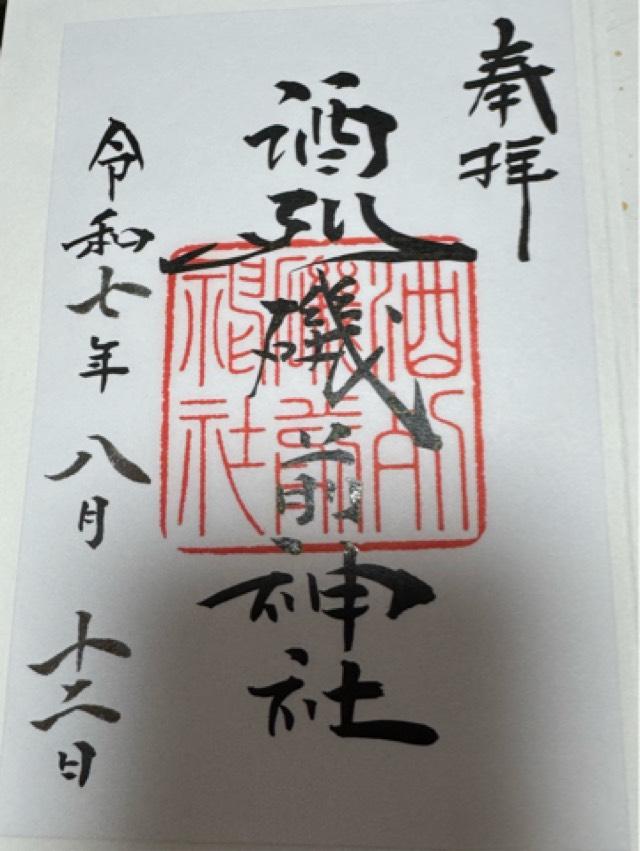 奉拝
酒列磯前神社
酒列
磯前
神社
令和七年八月十二日